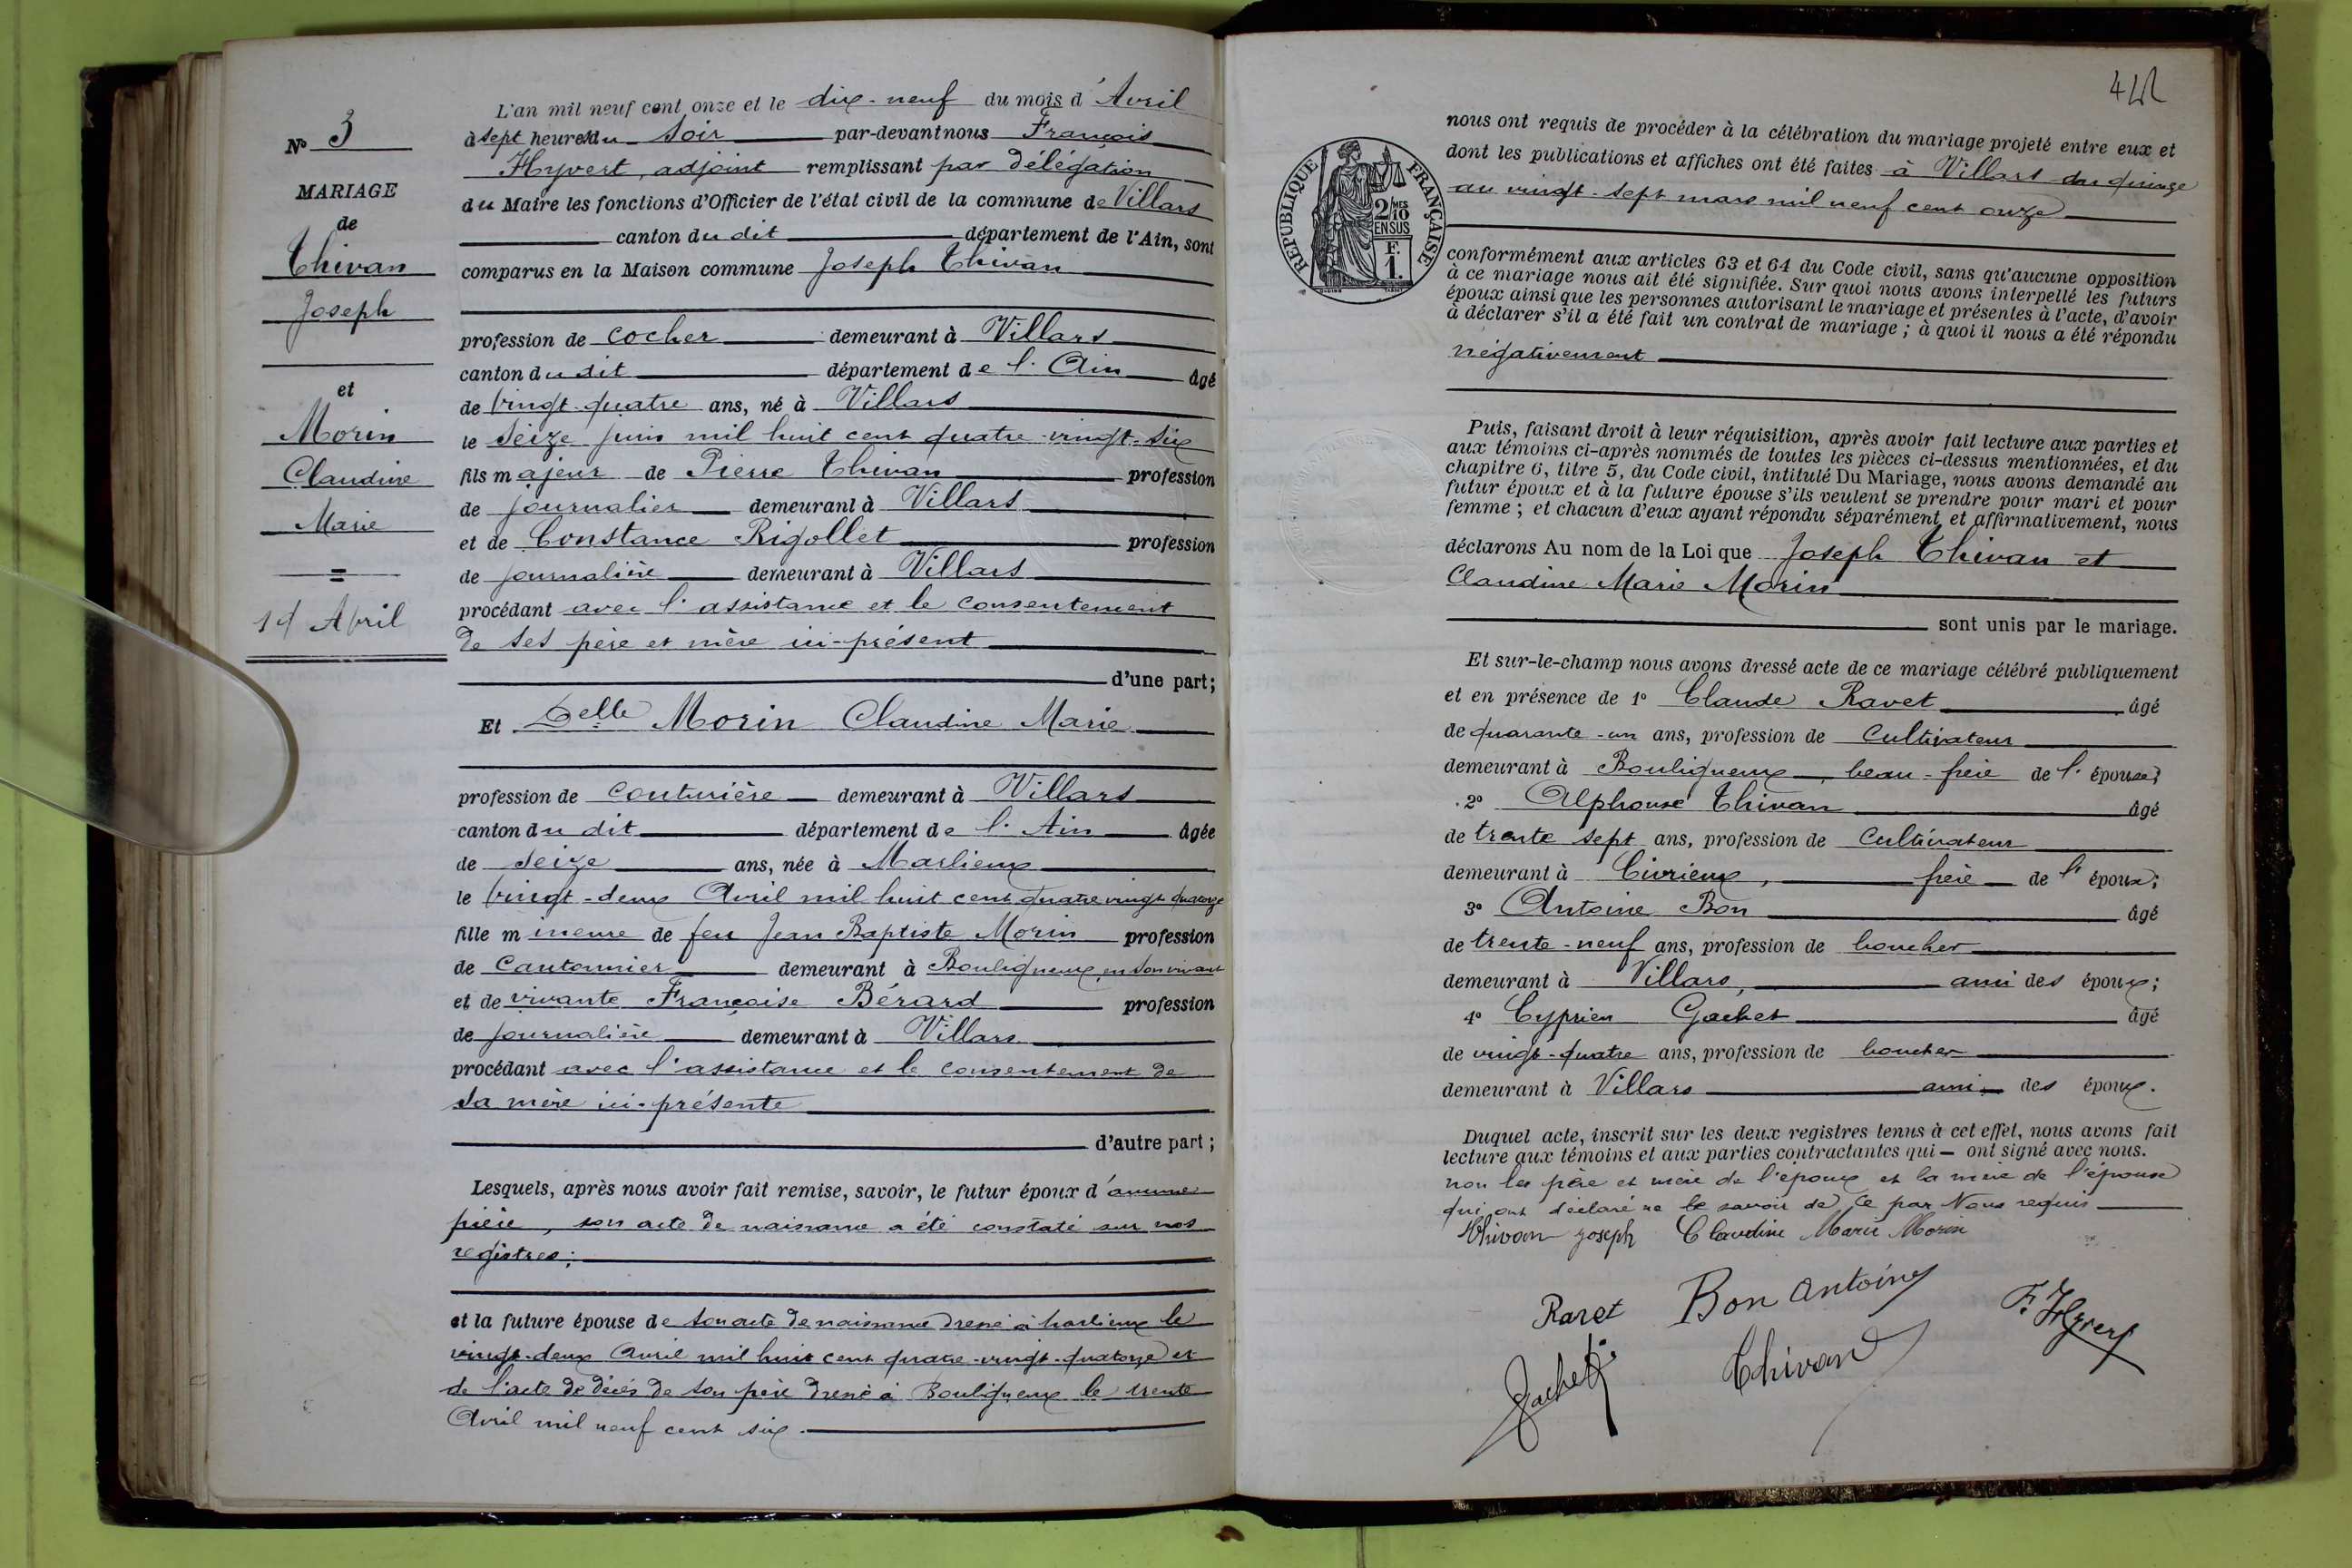 N° 3
MARIAGE
de
Thivan
Joseph
et
Morin
Claudine
Marie
19 Avril
L'an mil neuf cent onze et le dix-neuf du mois d'Avril
à sept heures du soir par-devant nous François
Hyvert, adjoint remplissant par délégation
du Maire les fonctions d'Officier de l'état civil de la commune de Villars
canton du dit département de l'Ain, sont
comparus en la Maison commune Joseph Thivan
profession de cocher demeurant à Villars
canton du dit département de l'Ain âgé
de vingt-quatre ans, né à Villars
le seize juin mil huit cent quatre-vingt-six
fils majeur de Pierre Thivan profession
de journalier demeurant à Villars
et de Constance Rigollet profession
de journalière demeurant à Villars
procédant avec l'assistance et le consentement
de ses père et mère ici-présent
d'une part;
Et Delle Morin Claudine Marie
profession de couturière demeurant à Villars
canton du dit département de l'Ain âgée
de seize ans, née à Marlieux
le vingt-deux Avril mil huit cent quatre vingt quatorze
fille mineure de feu Jean Baptiste Morin profession
de cantonnier demeurant à Bouligneux, en son vivant
et de vivante Françoise Bérard profession
de journalière demeurant à Villars
procédant avec l'assistance et le consentement de
sa mère ici-présente
d'autre part;
Lesquels, après nous avoir fait remise, savoir, le futur époux d'aucune
pièce, son acte de naissance a été constaté sur nos
registres;
et la future épouse de son acte de naissance dressé à Marlieux le
vingt-deux Avril mil huit cent quatre-vingt-quatorze et
de l'acte de décès de son père dressé à Bouligneux le trente
Avril mil neuf cent six.
RÉPUBLIQUE FRANÇAISE
2/10 MES
EN SUS
F.
1.
nous ont requis de procéder à la célébration du mariage projeté entre eux et
dont les publications et affiches ont été faites à Villars du quinze
au vingt-sept mars mil neuf cent onze
conformément aux articles 63 et 64 du Code civil, sans qu'aucune opposition
à ce mariage nous ait été signifiée. Sur quoi nous avons interpellé les futurs
époux ainsi que les personnes autorisant le mariage et présentes à l'acte, d'avoir
à déclarer s'il a été fait un contrat de mariage; à quoi il nous a été répondu
négativement
Puis, faisant droit à leur réquisition, après avoir fait lecture aux parties et
aux témoins ci-après nommés de toutes les pièces ci-dessus mentionnées, et du
chapitre 6, titre 5, du Code civil, intitulé Du Mariage, nous avons demandé au
futur époux et à la future épouse s'ils veulent se prendre pour mari et pour
femme; et chacun d'eux ayant répondu séparément et affirmativement, nous
déclarons Au nom de la Loi que Joseph Thivan et
Claudine Marie Morin
sont unis par le mariage.
Et sur-le-champ nous avons dressé acte de ce mariage célébré publiquement
et en présence de 1° Claude Ravet âgé
de quarante-un ans, profession de Cultivateur
demeurant à Bouligneux, beau-frère de l'épouse;
2° Alphonse Thivan âgé
de trente sept ans, profession de Cultivateur
demeurant à Civrieux, frère de l'époux;
3° Antoine Bon âgé
de trente-neuf ans, profession de boucher
demeurant à Villars, ami des époux;
4° Cyprien Gachet âgé
de vingt-quatre ans, profession de boucher
demeurant à Villars ami des époux.
Duquel acte, inscrit sur les deux registres tenus à cet effet, nous avons fait
lecture aux témoins et aux parties contractantes qui — ont signé avec nous.
non les père et mère de l'époux et la mère de l'épouse
qui ont déclaré ne le savoir de ce par Nous requis
Thivan joseph Claudine Marie Morin
Ravet Bon Antoine F. Hyvert
Gachet Thivan